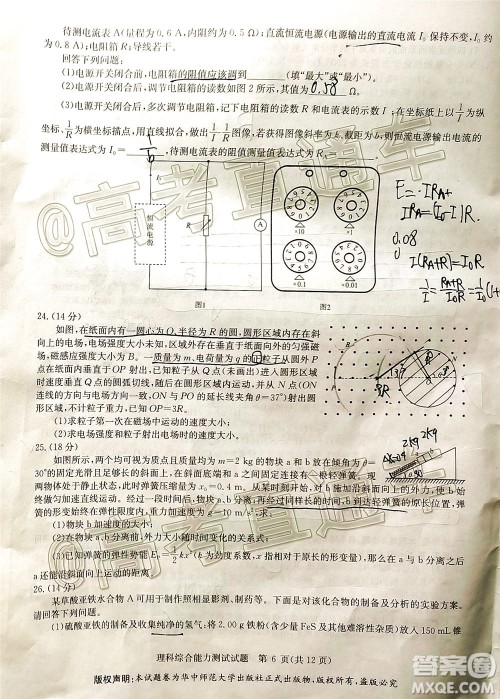 待测电流表 A(量程为 0.6 A,内阻约为 0.5 Ω);直流恒流电源(电源输出的直流电流 I₀ 保持不变,约
为 0.8 A);电阻箱 R;导线若干。
回答下列问题:
(1)电源开关闭合前,电阻箱的阻值应该调到 (填“最大”或“最小”)。
(2)电源开关闭合后,调节电阻箱的读数如图 2 所示,其值为 0.58
(3)电源开关闭合后,多次调节电阻箱,记下电阻箱的读数 R 和电流表的示数 I;在坐标纸上以 1/I 为纵
坐标,1/R 为横坐标描点,用直线拟合,做出 1/I - 1/R 图像,若图像的斜率为 k,截距为 b,则恒流电源输出电流的
测量值表达式为 I₀ = 1/b ,待测电流表的阻值测量值表达式为 R
恒流电源
R
A
×10
×1
×0.1
×0.01
图1
图2
0.08
I(RA+R)=I₀R
24.(14 分)
如图,在纸面内有一圆心为 O,半径为 R 的圆,圆形区域内存在斜
向上的电场,电场强度大小未知,区域外存在垂直于纸面向外的匀强磁
场,磁感应强度大小为 B。一质量为 m,电荷量为 q 的正粒子从圆外 P
点在纸面内垂直于 OP 射出,已知粒子经 Q 点(未画出)进入圆形区域
时速度垂直 Q 点的圆弧切线,随后在电场中偏转,并从 N 点(ON
与以电场方向垂直)离开圆形区域,ON 与 PO 的延长线夹角 θ=37°,圆
形区域,不计粒子重力,已知 OP=3R。
(1)求粒子第一次在磁场中运动的速度大小。
(2)求电场强度和电场中出射速度的大小。
25.(18 分)
如图所示,两个均可视为质点且质量均为 m=2 kg 的物块 a 和 b 放在倾角为
30°的固定光滑且足够长的斜面上,在斜面底端和 a 之间固定连接一轻弹簧,现
两物体处于静止状态,此时弹簧压缩量为 x₀=0.4 m。从某时刻开始,对 b 施加沿斜面向上的外力 F,使 b 始终
做匀加速直线运动。经过一段时间后,物块 a、b 分离;再经过同样长的时间,b 距其出发点的距离恰好也为 x₀,
弹簧始终在弹性限度内,其中重力加速度 g=10 m/s²,求:
(1)物块 b 加速度的大小。
(2)在物块 a、b 分离前,外力大小随时间变化的关系式。
2kg 2kg
26.(14 分)
某草酸亚铁水合物 A 可用于制作照相显影剂、新型电池材料等,实验室对该化合物的制备及分解进行探究。
请回答以下问题。
(1)硫酸亚铁的制备及收集纯净的氢气:将 2.00 g 铁粉(含少量 FeS 及其他难溶性杂质)放入 150 mL 锥
理科综合能力测试试题 第 6 页(共 12 页)
版权声明:本试题卷为华中师范大学出版社正式出版物,版权所有,盗版必究。
@高考直通车
@高考直通车